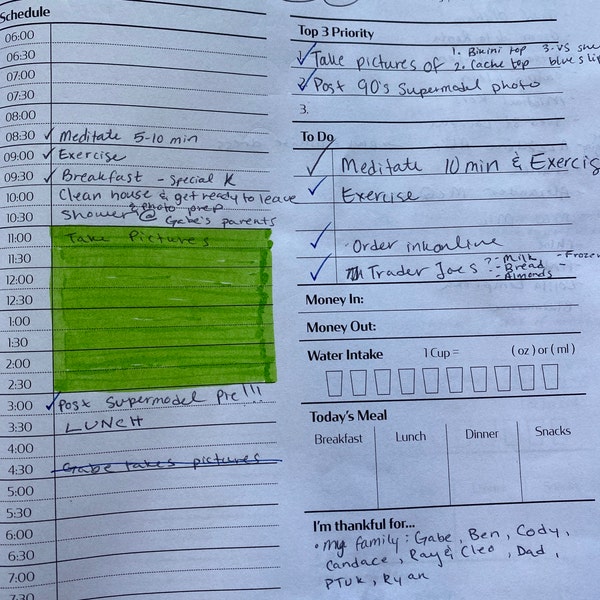 Schedule
06:00
06:30
07:00
07:30
08:00
08:30 ✓ Meditate 5-10 min
09:00 ✓ Exercise
09:30 ✓ Breakfast - Special K
10:00 Clean house & get ready to leave
& photo prep
10:30 Shower @ Gabe's parents
11:00 Take Pictures
11:30
12:00
12:30
1:00
1:30
2:00
2:30
3:00 ✓ Post Supermodel Pic!!!
3:30 LUNCH
4:00
4:30 Gabe takes pictures
5:00
5:30
6:00
6:30
7:00
7:30
Top 3 Priority
1. Take pictures of 1. Bikini top 3. VS
2. Cache top blue slip
2. Post 90's Supermodel photo
3.
To Do
✓ Meditate 10 min & Exercis
✓ Exercise
✓ Order ink online
✓ Trader Joes ? - Milk - Frozen
- Bread -
- Almonds
Money In:
Money Out:
Water Intake 1 Cup = (oz) or (ml)
Today's Meal
Breakfast Lunch Dinner Snacks
I'm thankful for...
• my family: Gabe, Ben, Cody,
Candace, Ray & Cleo, Dad,
PTUK, Ryan